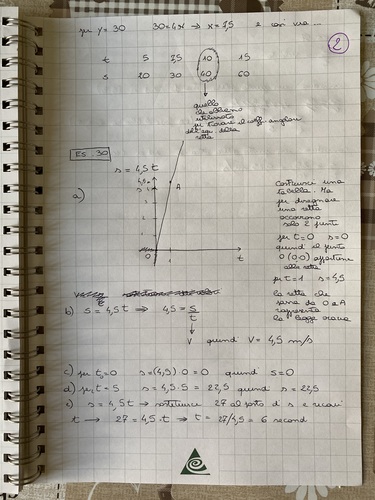 per y = 30 30 = 4x → x = 7,5 e così via ...
2
t 5 7,5 10 15
s 20 30 40 60
quello
che abbiamo
utilizzato
per trovare il coeff. angolare
dell'eq. della
retta
ES. 30
s = 4,5 t
a)
A
O 1 t
costruisce una
tabella. Ma
per disegnare
una retta
occorrono
solo 2 punti
per t = 0 s = 0
quindi il punto
O (0,0) appartiene
alla retta
per t = 1 s = 4,5
la retta che
passa da O e A
rappresenta
la legge oraria
b) s = 4,5 t ⇒ 4,5 = s/t
v quindi V = 4,5 m/s
c) per t₀ = 0 s = (4,5) 0 = 0 quindi s = 0
d) per t = 5 s = 4,5 · 5 = 22,5 quindi s = 22,5
e) s = 4,5 t → sostituisce 27 al posto di s e ricavi
t → 27 = 4,5 · t ⇒ t = 27/4,5 = 6 second